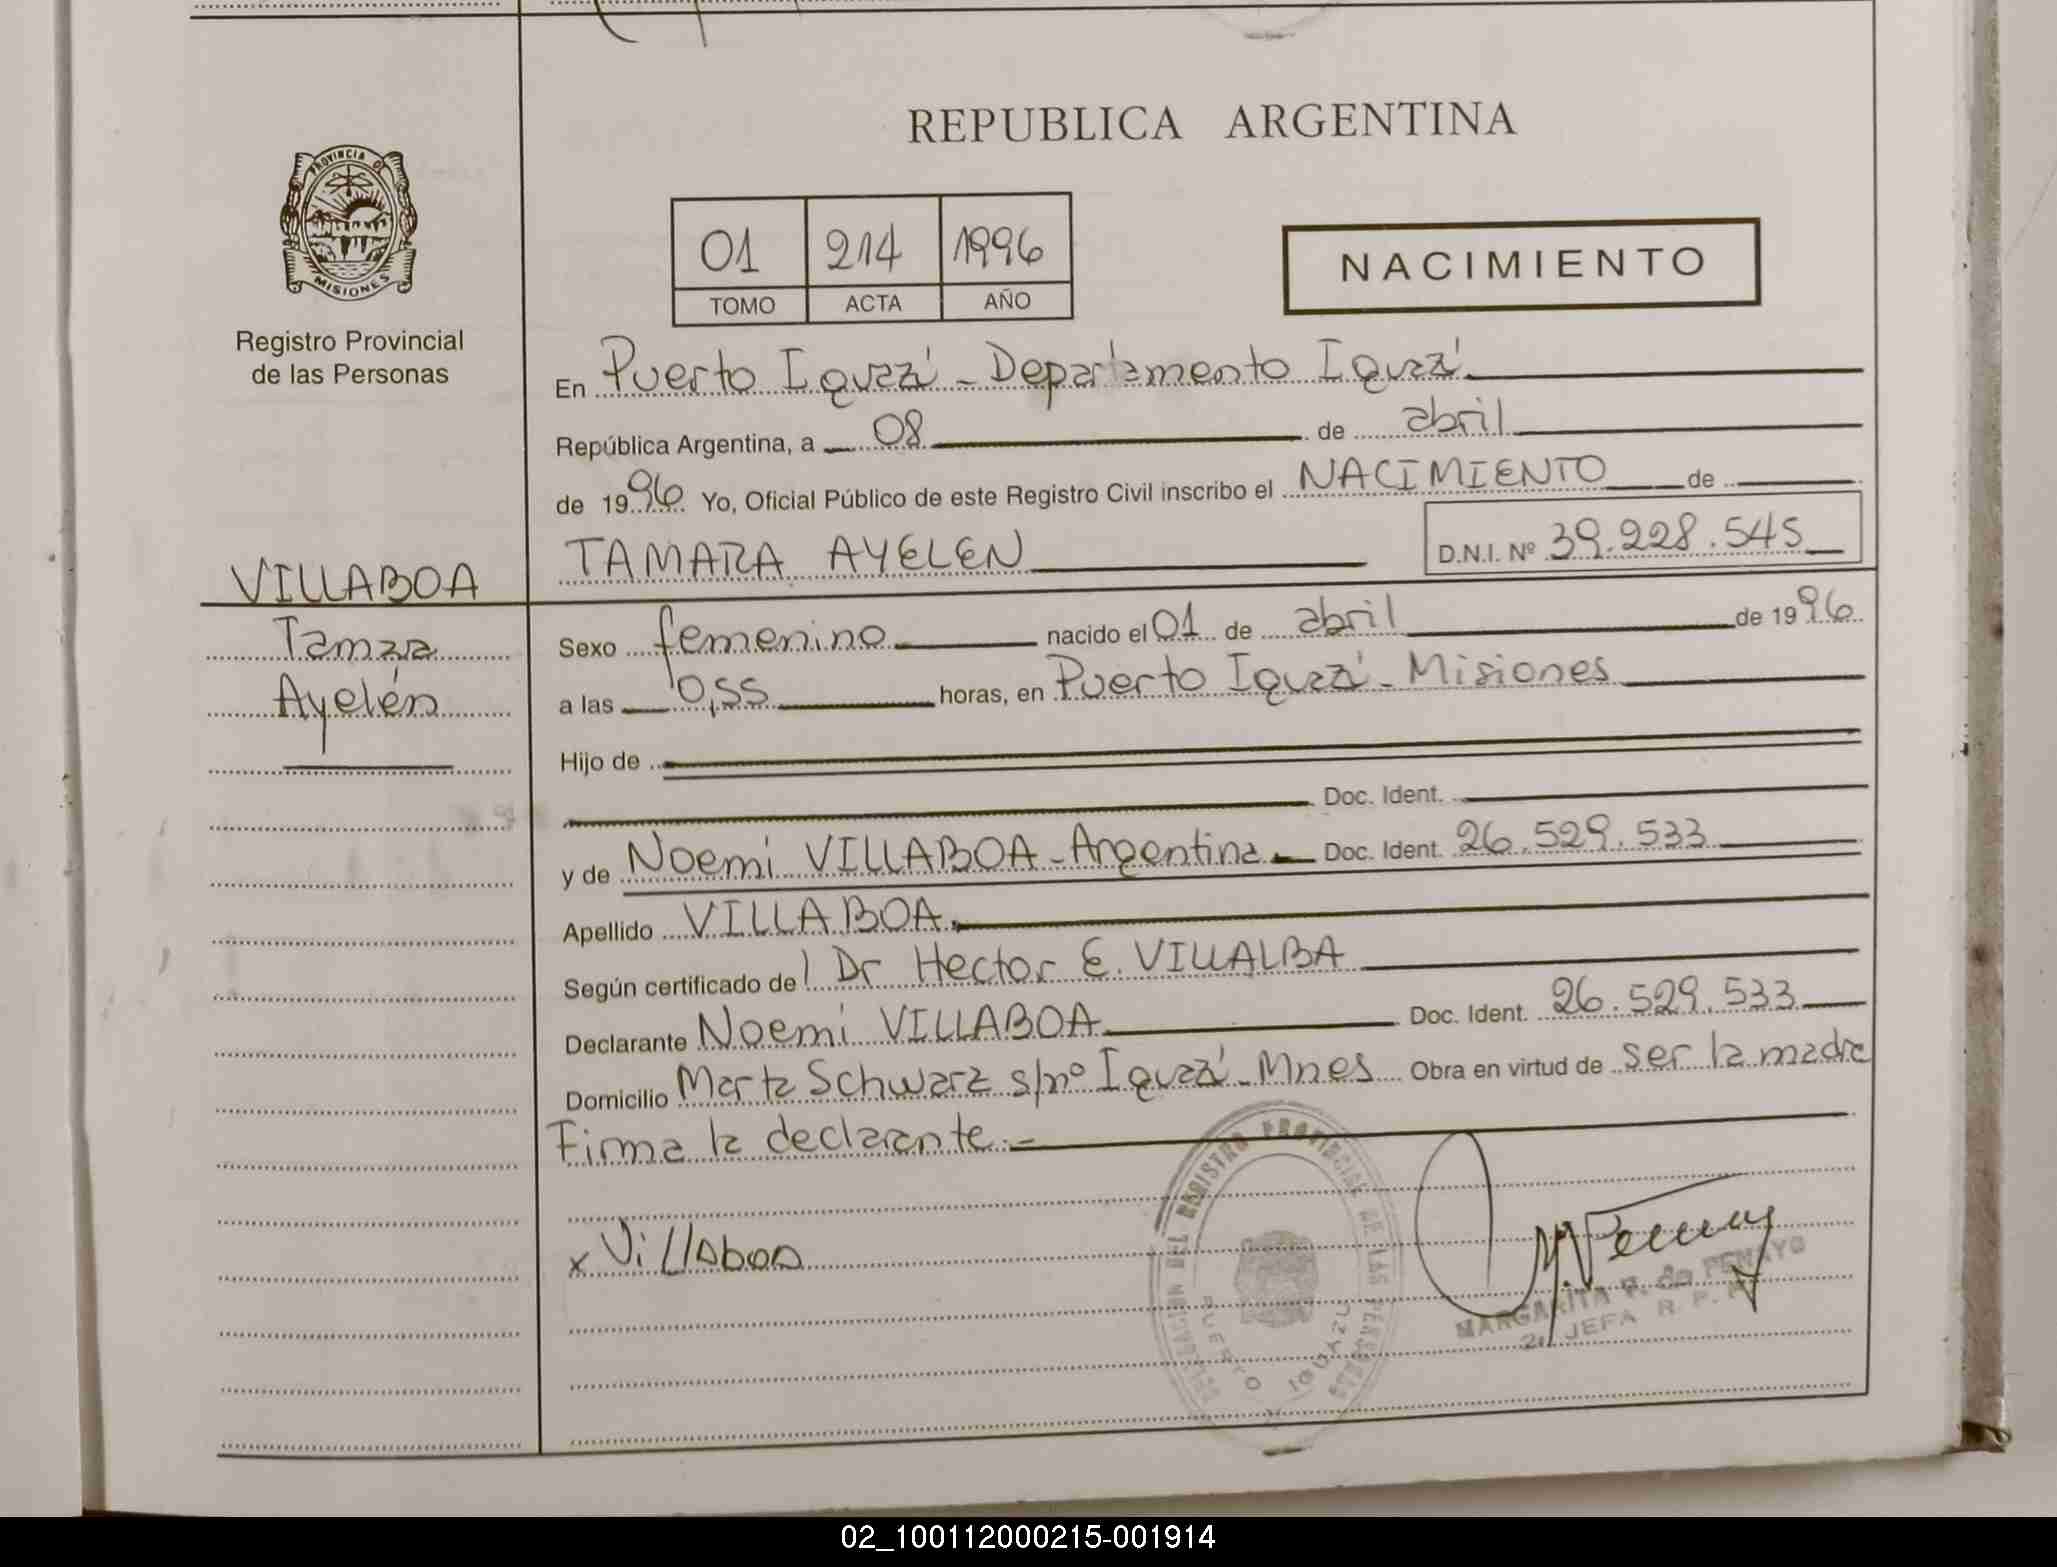 REPUBLICA ARGENTINA
PROVINCIA DE
MISIONES
Registro Provincial
de las Personas
01 214 1996
TOMO ACTA AÑO
NACIMIENTO
En Puerto Iguazú - Departamento Iguazú
República Argentina, a 08 de abril
de 1996 Yo, Oficial Público de este Registro Civil inscribo el NACIMIENTO de
TAMARA AYELEN D.N.I. Nº 39.228.545
VILLABOA
Tamara
Ayelén
Sexo femenino nacido el 01 de abril de 1996
a las 0,55 horas, en Puerto Iguazú - Misiones
Hijo de
Doc. Ident.
y de Noemi VILLABOA - Argentina Doc. Ident. 26.529.533
Apellido VILLABOA
Según certificado de Dr Hector E. VILLALBA
Declarante Noemi VILLABOA Doc. Ident. 26.529.533
Domicilio Marta Schwarz s/nº Iguazú - Mnes Obra en virtud de ser la madre
Firma la declarante.-
x Villaboa
DELEGACION DEL REGISTRO PROVINCIAL DE LAS PERSONAS
PUERTO IGUAZU
MARGARITA de PENAYO
JEFA R. P. P.
02_100112000215-001914